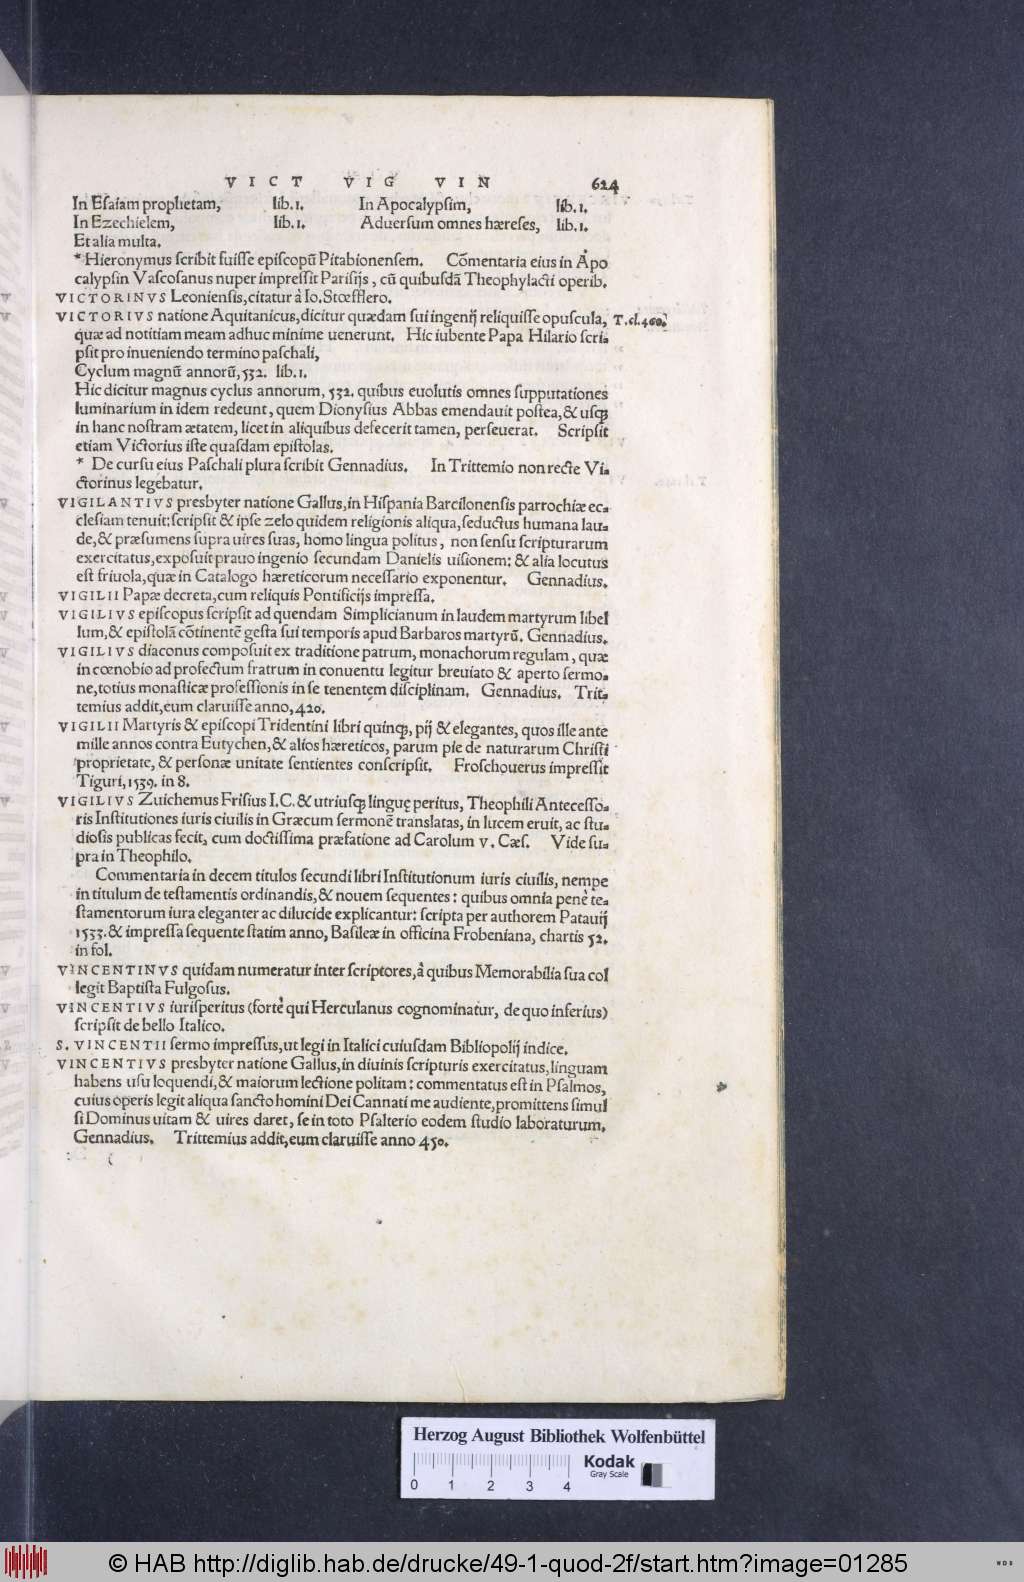 VICT VIG VIN 624
In Eſaiam prophetam, lib.1. In Apocalypſim, lib.1.
In Ezechielem, lib.1. Aduerſum omnes hæreſes, lib.1.
Et alia multa.
* Hieronymus ſcribit fuiſſe epiſcopũ Pitabionenſem. Cõmentaria eius in Apo
calypſin Vaſcoſanus nuper impreſſit Pariſijs, cũ quibuſdã Theophylacti operib.
VICTORINVS Leonienſis, citatur à Io. Stœfflero.
VICTORIVS natione Aquitanicus, dicitur quædam ſui ingenij reliquiſſe opuſcula, T.cl.460.
quæ ad notitiam meam adhuc minime uenerunt. Hic iubente Papa Hilario ſcri-
pſit pro inueniendo termino paſchali,
Cyclum magnũ annorũ, 532. lib.1.
Hic dicitur magnus cyclus annorum, 532. quibus euolutis omnes ſupputationes
luminarium in idem redeunt, quem Dionyſius Abbas emendauit poſtea, & uſqꝫ
in hanc noſtram ætatem, licet in aliquibus defecerit tamen, perſeuerat. Scripſit
etiam Victorius iſte quaſdam epiſtolas.
* De curſu eius Paſchali plura ſcribit Gennadius. In Trittemio non recte Vi-
ctorinus legebatur.
VIGILANTIVS presbyter natione Gallus, in Hiſpania Barcilonenſis parrochiæ ec-
cleſiam tenuit: ſcripſit & ipſe zelo quidem religionis aliqua, ſeductus humana lau-
de, & præſumens ſupra uires ſuas, homo lingua politus, non ſenſu ſcripturarum
exercitatus, expoſuit prauo ingenio ſecundam Danielis uiſionem: & alia locutus
eſt friuola, quæ in Catalogo hæreticorum neceſſario exponentur. Gennadius.
VIGILII Papæ decreta, cum reliquis Pontificijs impreſſa.
VIGILIVS epiſcopus ſcripſit ad quendam Simplicianum in laudem martyrum libel
lum, & epiſtolã cõtinentẽ geſta ſui temporis apud Barbaros martyrũ. Gennadius.
VIGILIVS diaconus compoſuit ex traditione patrum, monachorum regulam, quæ
in cœnobio ad profectum fratrum in conuentu legitur breuiato & aperto ſermo-
ne, totius monaſticæ profeſſionis in ſe tenentem diſciplinam. Gennadius. Trit-
temius addit, eum claruiſſe anno, 420.
VIGILII Martyris & epiſcopi Tridentini libri quinqꝫ, pij & elegantes, quos ille ante
mille annos contra Eutychen, & alios hæreticos, parum pie de naturarum Chriſti
proprietate, & perſonæ unitate ſentientes conſcripſit. Froſchouerus impreſſit
Tiguri, 1539. in 8.
VIGILIVS Zuichemus Friſius I.C. & utriuſqꝫ linguę peritus, Theophili Anteceſſo-
ris Inſtitutiones iuris ciuilis in Græcum ſermonẽ translatas, in lucem eruit, ac ſtu-
dioſis publicas fecit, cum doctiſſima præfatione ad Carolum v. Cæſ. Vide ſu-
pra in Theophilo.
Commentaria in decem titulos ſecundi libri Inſtitutionum iuris ciuilis, nempe
in titulum de teſtamentis ordinandis, & nouem ſequentes: quibus omnia penè te-
ſtamentorum iura eleganter ac dilucide explicantur: ſcripta per authorem Patauij
1533. & impreſſa ſequente ſtatim anno, Baſileæ in officina Frobeniana, chartis 52.
in fol.
VINCENTINVS quidam numeratur inter ſcriptores, à quibus Memorabilia ſua col
legit Baptiſta Fulgoſus.
VINCENTIVS iuriſperitus (fortè qui Herculanus cognominatur, de quo inferius)
ſcripſit de bello Italico.
S. VINCENTII ſermo impreſſus, ut legi in Italici cuiuſdam Bibliopolij indice.
VINCENTIVS presbyter natione Gallus, in diuinis ſcripturis exercitatus, linguam
habens uſu loquendi, & maiorum lectione politam: commentatus eſt in Pſalmos,
cuius operis legit aliqua ſancto homini Dei Cannati me audiente, promittens ſimul
ſi Dominus uitam & uires daret, ſe in toto Pſalterio eodem ſtudio laboraturum.
Gennadius. Trittemius addit, eum claruiſſe anno 450.
Herzog August Bibliothek Wolfenbüttel
Kodak
Gray Scale
0 1 2 3 4
© HAB http://diglib.hab.de/drucke/49-1-quod-2f/start.htm?image=01285
WDB